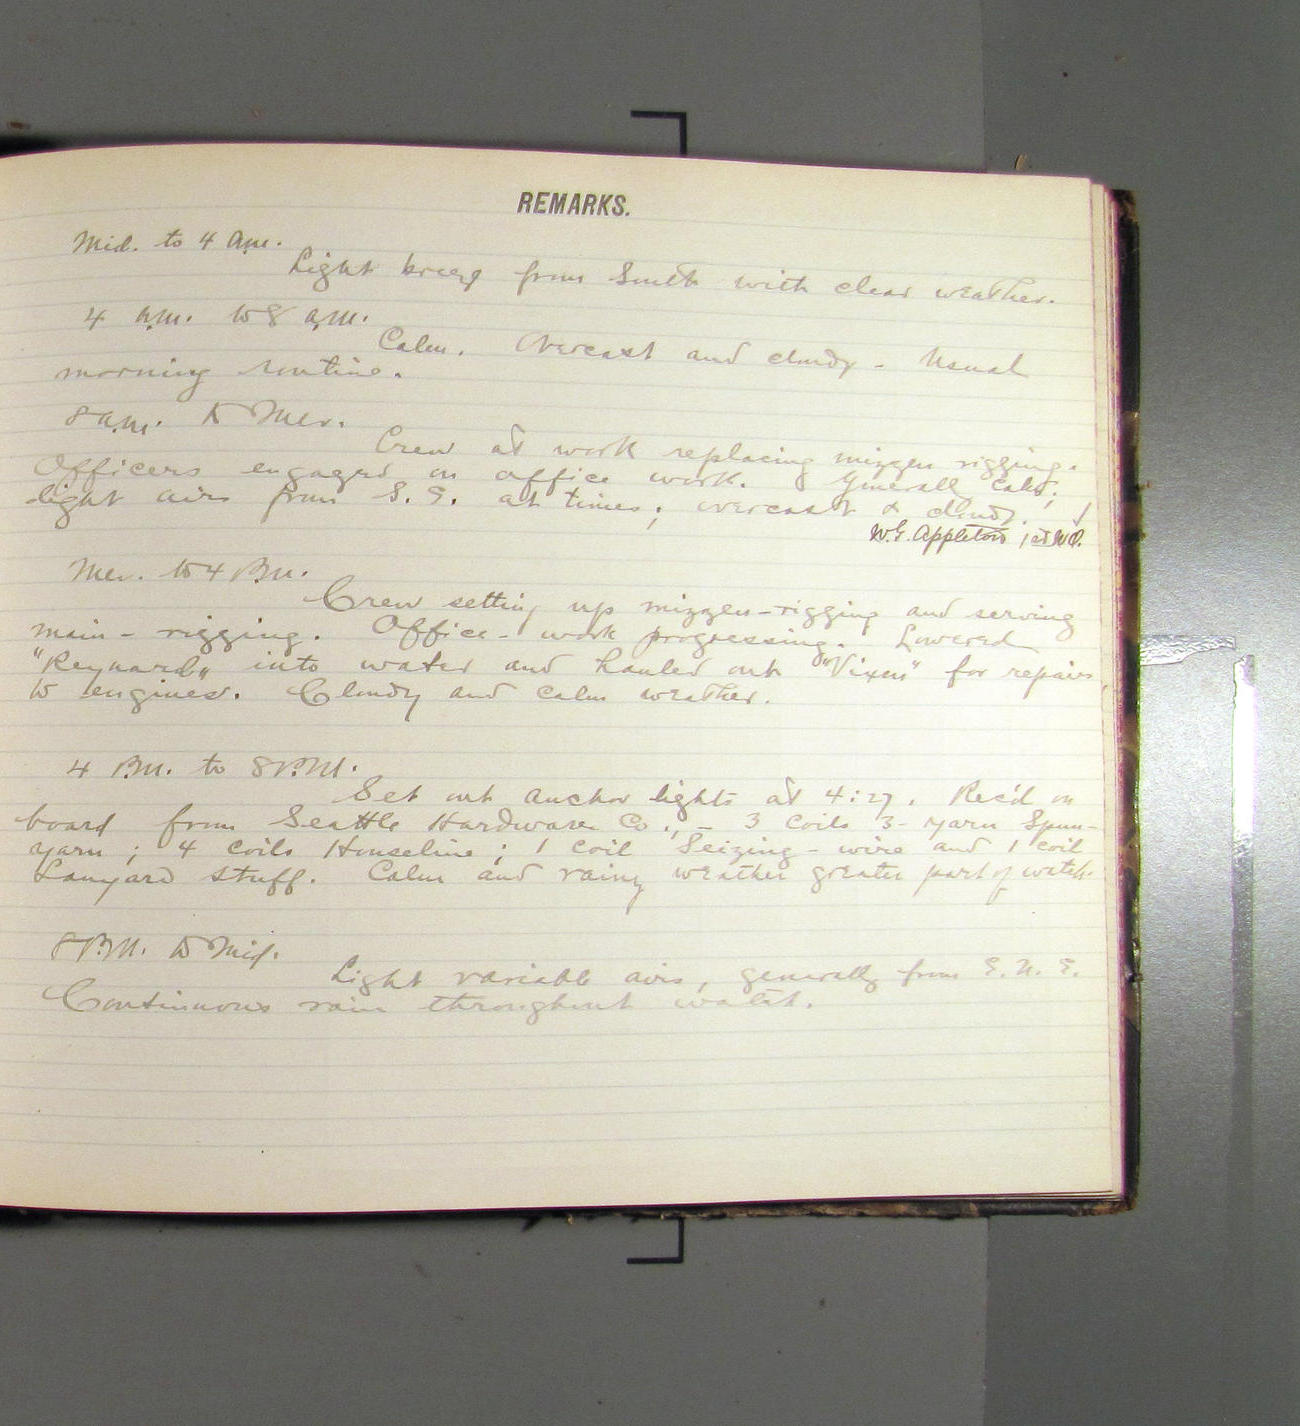 REMARKS.
Mid. to 4 a.m.
Light breeze from South with clear weather.
4 a.m. to 8 a.m.
Calm. Overcast and cloudy - Usual
morning routine.
8 a.m. to Mer.
Crew at work replacing mizzen rigging.
Officers engaged in office work. Generall calm;
light airs from S. E. at times; overcast & cloudy.
W.E. Appleton
Mer. to 4 P.M.
Crew setting up mizzen-rigging and serving
main-rigging. Office-work progressing. Lowered
"Reynard" into water and hauled out "Vixen" for repairs
to engines. Cloudy and calm weather.
4 P.M. to 8 P.M.
Set out anchor lights at 4:27. Rec'd on
board from Seattle Hardware Co., - 3 coils 3-yarn Spun-
yarn; 4 coils Houseline; 1 coil Seizing-wire and 1 coil
Lanyard stuff. Calm and rainy weather greater part of watch.
8 P.M. to Mid.
Light variable airs, generally from E.N.E.
Continuous rain throughout watch.